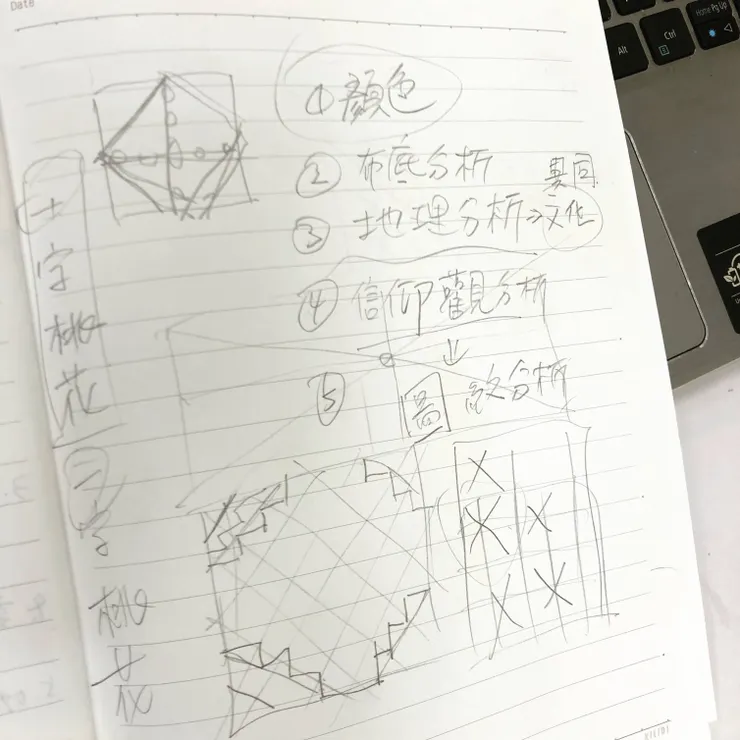 Date
① 顏色
② 布底分析
異同
③ 地理分析→文化
④ 信仰觀分析
↓
⑤ 圖紋分析
十字桃花
字桃花
Alt
Ctrl
Home
Pg Up